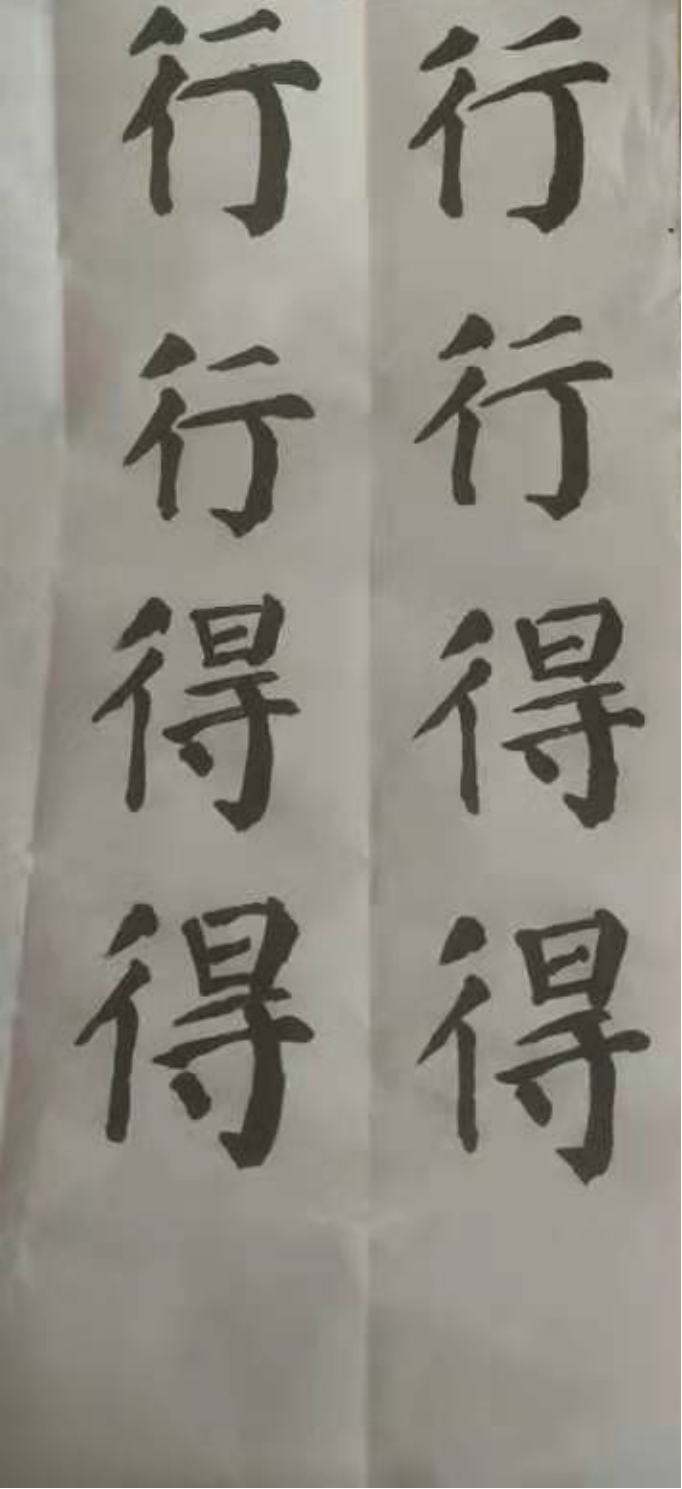 行行得得
行行得得